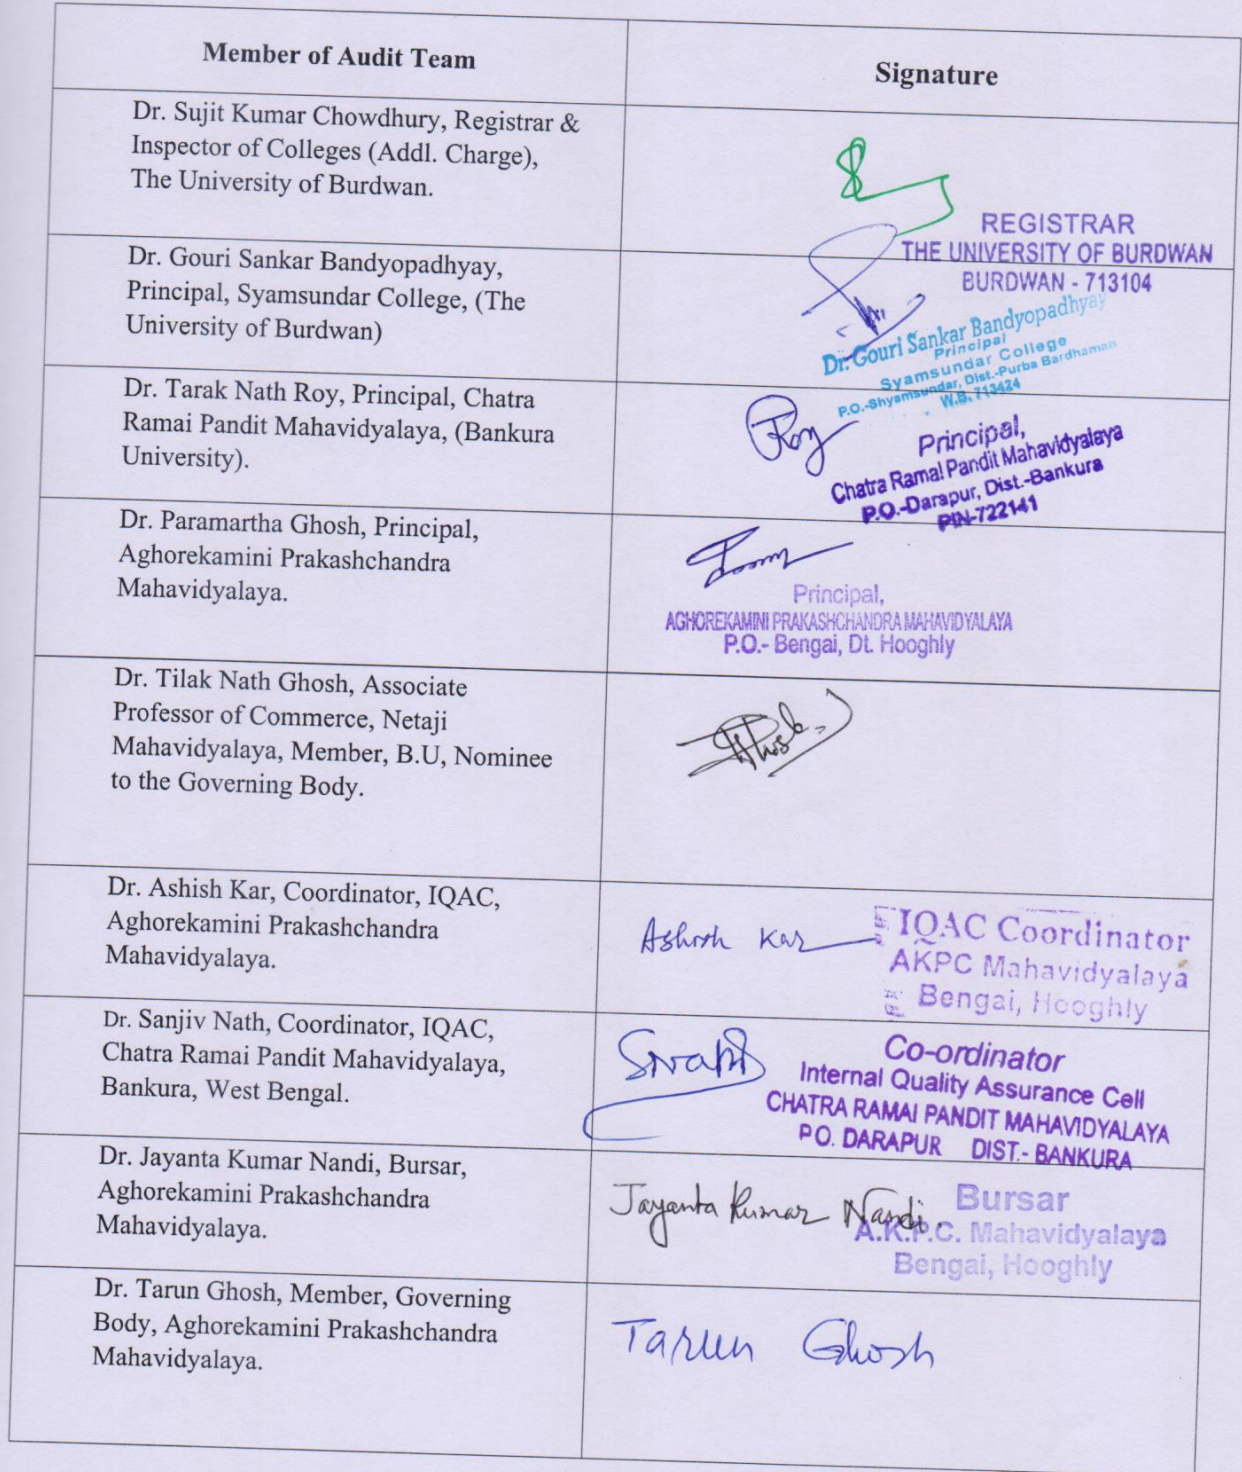 Member of Audit Team
Signature
Dr. Sujit Kumar Chowdhury, Registrar &
Inspector of Colleges (Addl. Charge),
The University of Burdwan.
REGISTRAR
THE UNIVERSITY OF BURDWAN
BURDWAN - 713104
Dr. Gouri Sankar Bandyopadhyay,
Principal, Syamsundar College, (The
University of Burdwan)
Dr. Gouri Sankar Bandyopadhyay
Principal
Syamsundar College
P.O.-Shyamsundar, Dist.-Purba Bardhaman
W.B. 713424
Dr. Tarak Nath Roy, Principal, Chatra
Ramai Pandit Mahavidyalaya, (Bankura
University).
Roy
Principal,
Chatra Ramai Pandit Mahavidyalaya
P.O.-Darapur, Dist.-Bankura
PIN-722141
Dr. Paramartha Ghosh, Principal,
Aghorekamini Prakashchandra
Mahavidyalaya.
Principal,
AGHOREKAMINI PRAKASHCHANDRA MAHAVIDYALAYA
P.O.- Bengai, Dt. Hooghly
Dr. Tilak Nath Ghosh, Associate
Professor of Commerce, Netaji
Mahavidyalaya, Member, B.U, Nominee
to the Governing Body.
Dr. Ashish Kar, Coordinator, IQAC,
Aghorekamini Prakashchandra
Mahavidyalaya.
Ashish Kar
IQAC Coordinator
AKPC Mahavidyalaya
Bengai, Hooghly
Dr. Sanjiv Nath, Coordinator, IQAC,
Chatra Ramai Pandit Mahavidyalaya,
Bankura, West Bengal.
Co-ordinator
Internal Quality Assurance Cell
CHATRA RAMAI PANDIT MAHAVIDYALAYA
P.O. DARAPUR DIST.- BANKURA
Dr. Jayanta Kumar Nandi, Bursar,
Aghorekamini Prakashchandra
Mahavidyalaya.
Jayanta Kumar Nandi
Bursar
A.K.P.C. Mahavidyalaya
Bengai, Hooghly
Dr. Tarun Ghosh, Member, Governing
Body, Aghorekamini Prakashchandra
Mahavidyalaya.
Tarun Ghosh